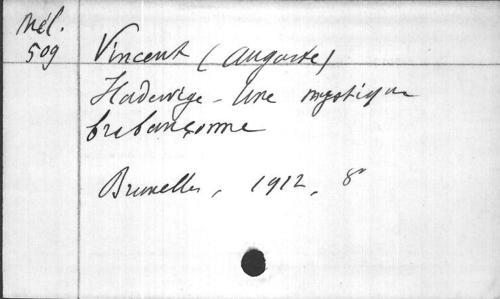 Mél.
509
Vincent (Auguste)
Hadewige - Une mystique
brabançonne
Bruxelles, 1912, 8°